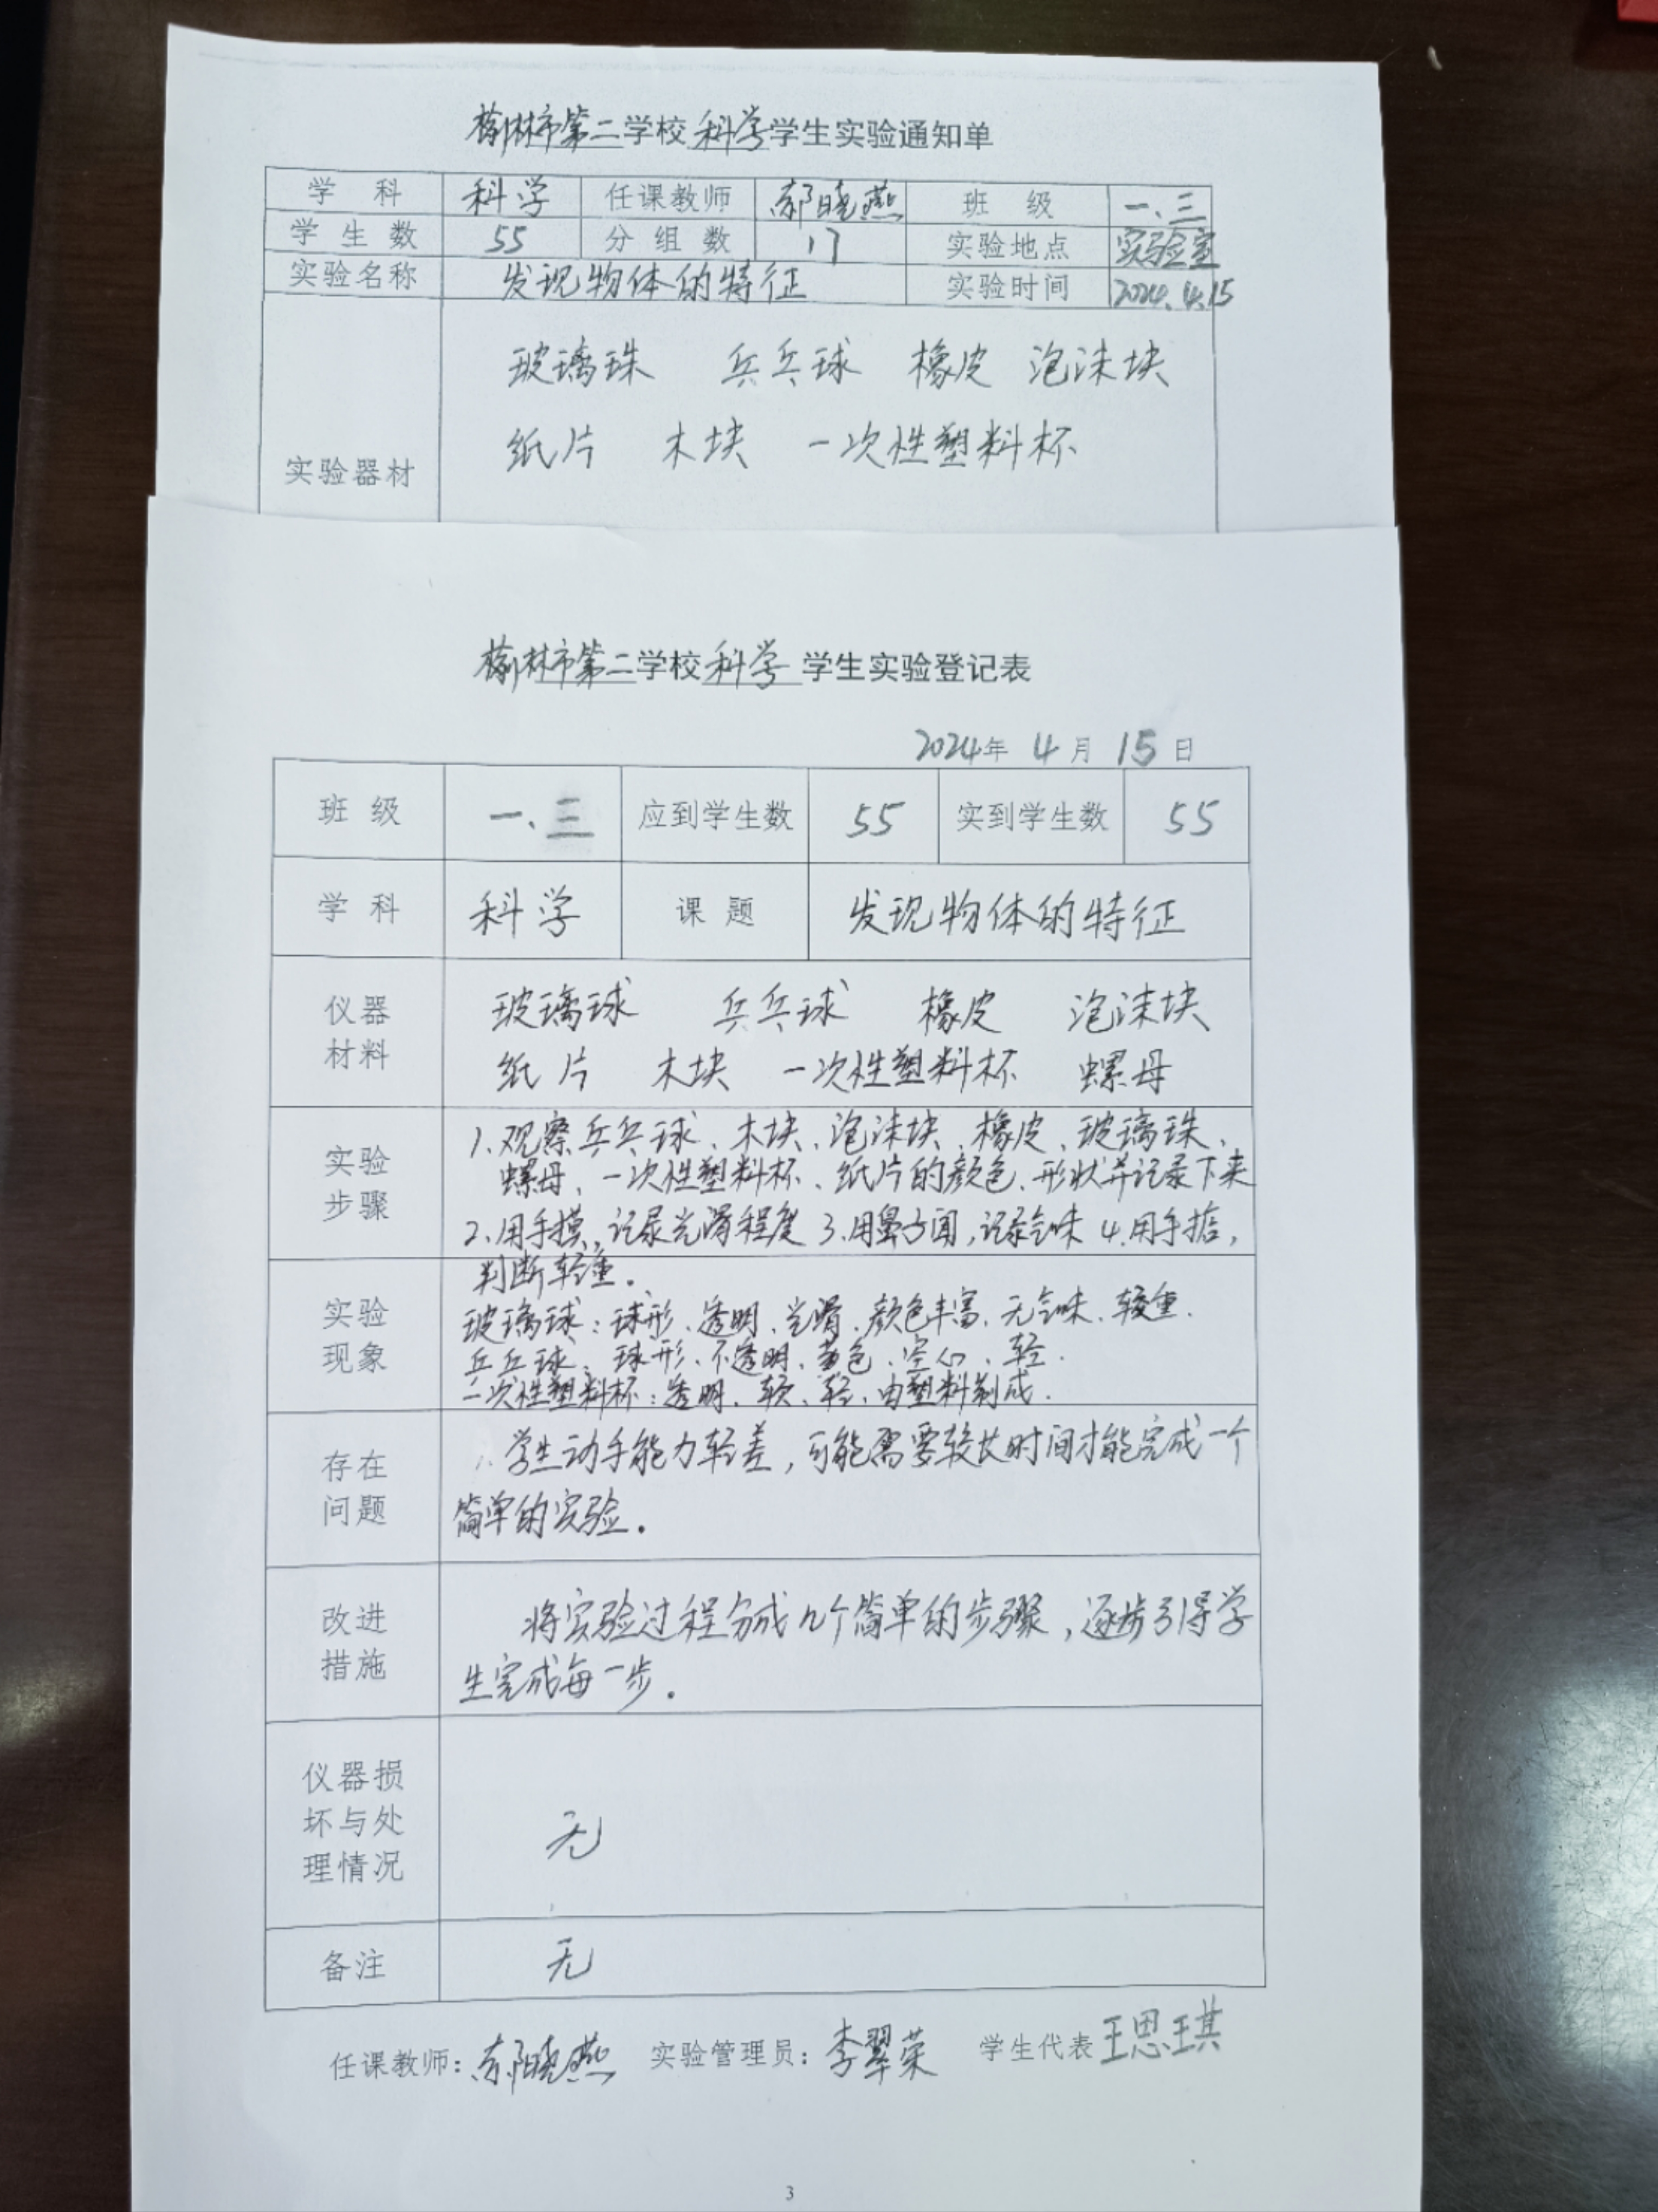 榆林市第二学校科学学生实验通知单
学 科 科学 任课教师 郝晓燕 班 级 一.三
学 生 数 55 分 组 数 17 实验地点 实验室
实验名称 发现物体的特征 实验时间 2024.4.15
玻璃珠 乒乓球 橡皮 泡沫块
纸片 木块 一次性塑料杯
实验器材
榆林市第二学校科学学生实验登记表
2024年 4 月 15 日
班 级 一.三 应到学生数 55 实到学生数 55
学 科 科学 课 题 发现物体的特征
仪器
材料
玻璃球 乒乓球 橡皮 泡沫块
纸片 木块 一次性塑料杯 螺母
实验
步骤
1.观察乒乓球、木块、泡沫块、橡皮、玻璃珠、
螺母、一次性塑料杯、纸片的颜色、形状并记录下来
2.用手摸,记录光滑程度 3.用鼻子闻,记录气味 4.用手掂,
判断轻重.
实验
现象
玻璃球:球形、透明、光滑、颜色丰富、无气味、较重.
乒乓球:球形、不透明、黄色、空心、轻.
一次性塑料杯:透明、软、轻、由塑料制成.
存在
问题
学生动手能力较差,可能需要较长时间才能完成一个
简单的实验.
改进
措施
将实验过程分成几个简单的步骤,逐步引导学
生完成每一步.
仪器损
坏与处
理情况
无
备注 无
任课教师:郝晓燕 实验管理员:李翠荣 学生代表 王思琪
3